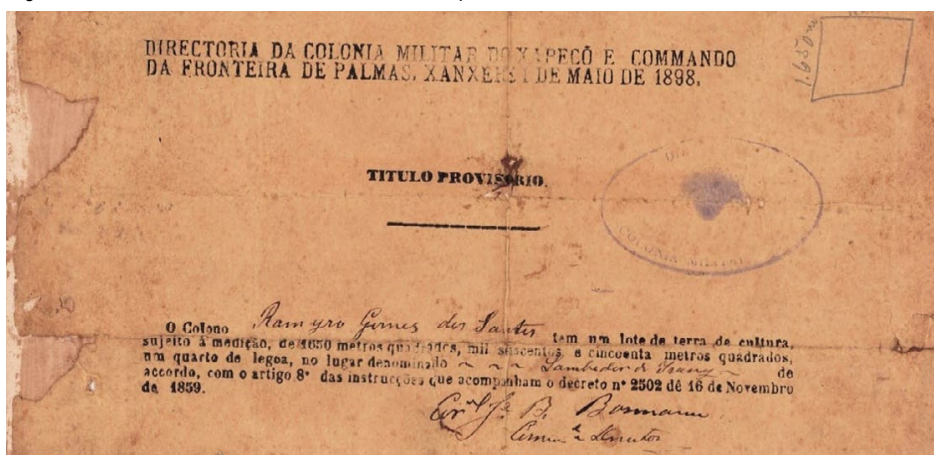 DIRECTORIA DA COLONIA MILITAR DO XAPECÓ E COMMANDO
DA FRONTEIRA DE PALMAS, XANXERÊ 1 DE MAIO DE 1898.
1.650 m
TITULO PROVISORIO.
COLONIA MILITAR
O Colono Ramyro Gomes dos Santos tem um lote de terra de cultura,
sujeito á medição, de 1650 metros quadrados, mil seiscentos e cincoenta metros quadrados,
um quarto de legoa, no lugar denominado Lambedor do de
accordo, com o artigo 8º das instrucções que acompanham o decreto nº 2502 dê 16 de Novembro
de 1859.
B. Bormann